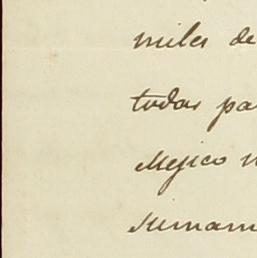 miles de
todas pa
Mejico n
sumam